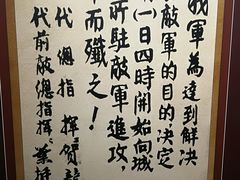 我軍為達到解決
敵軍的目的決定
一日四時開始向城
所駐敵軍進攻，
而殲之！
代總指揮賀龍
代前敵總指揮葉挺